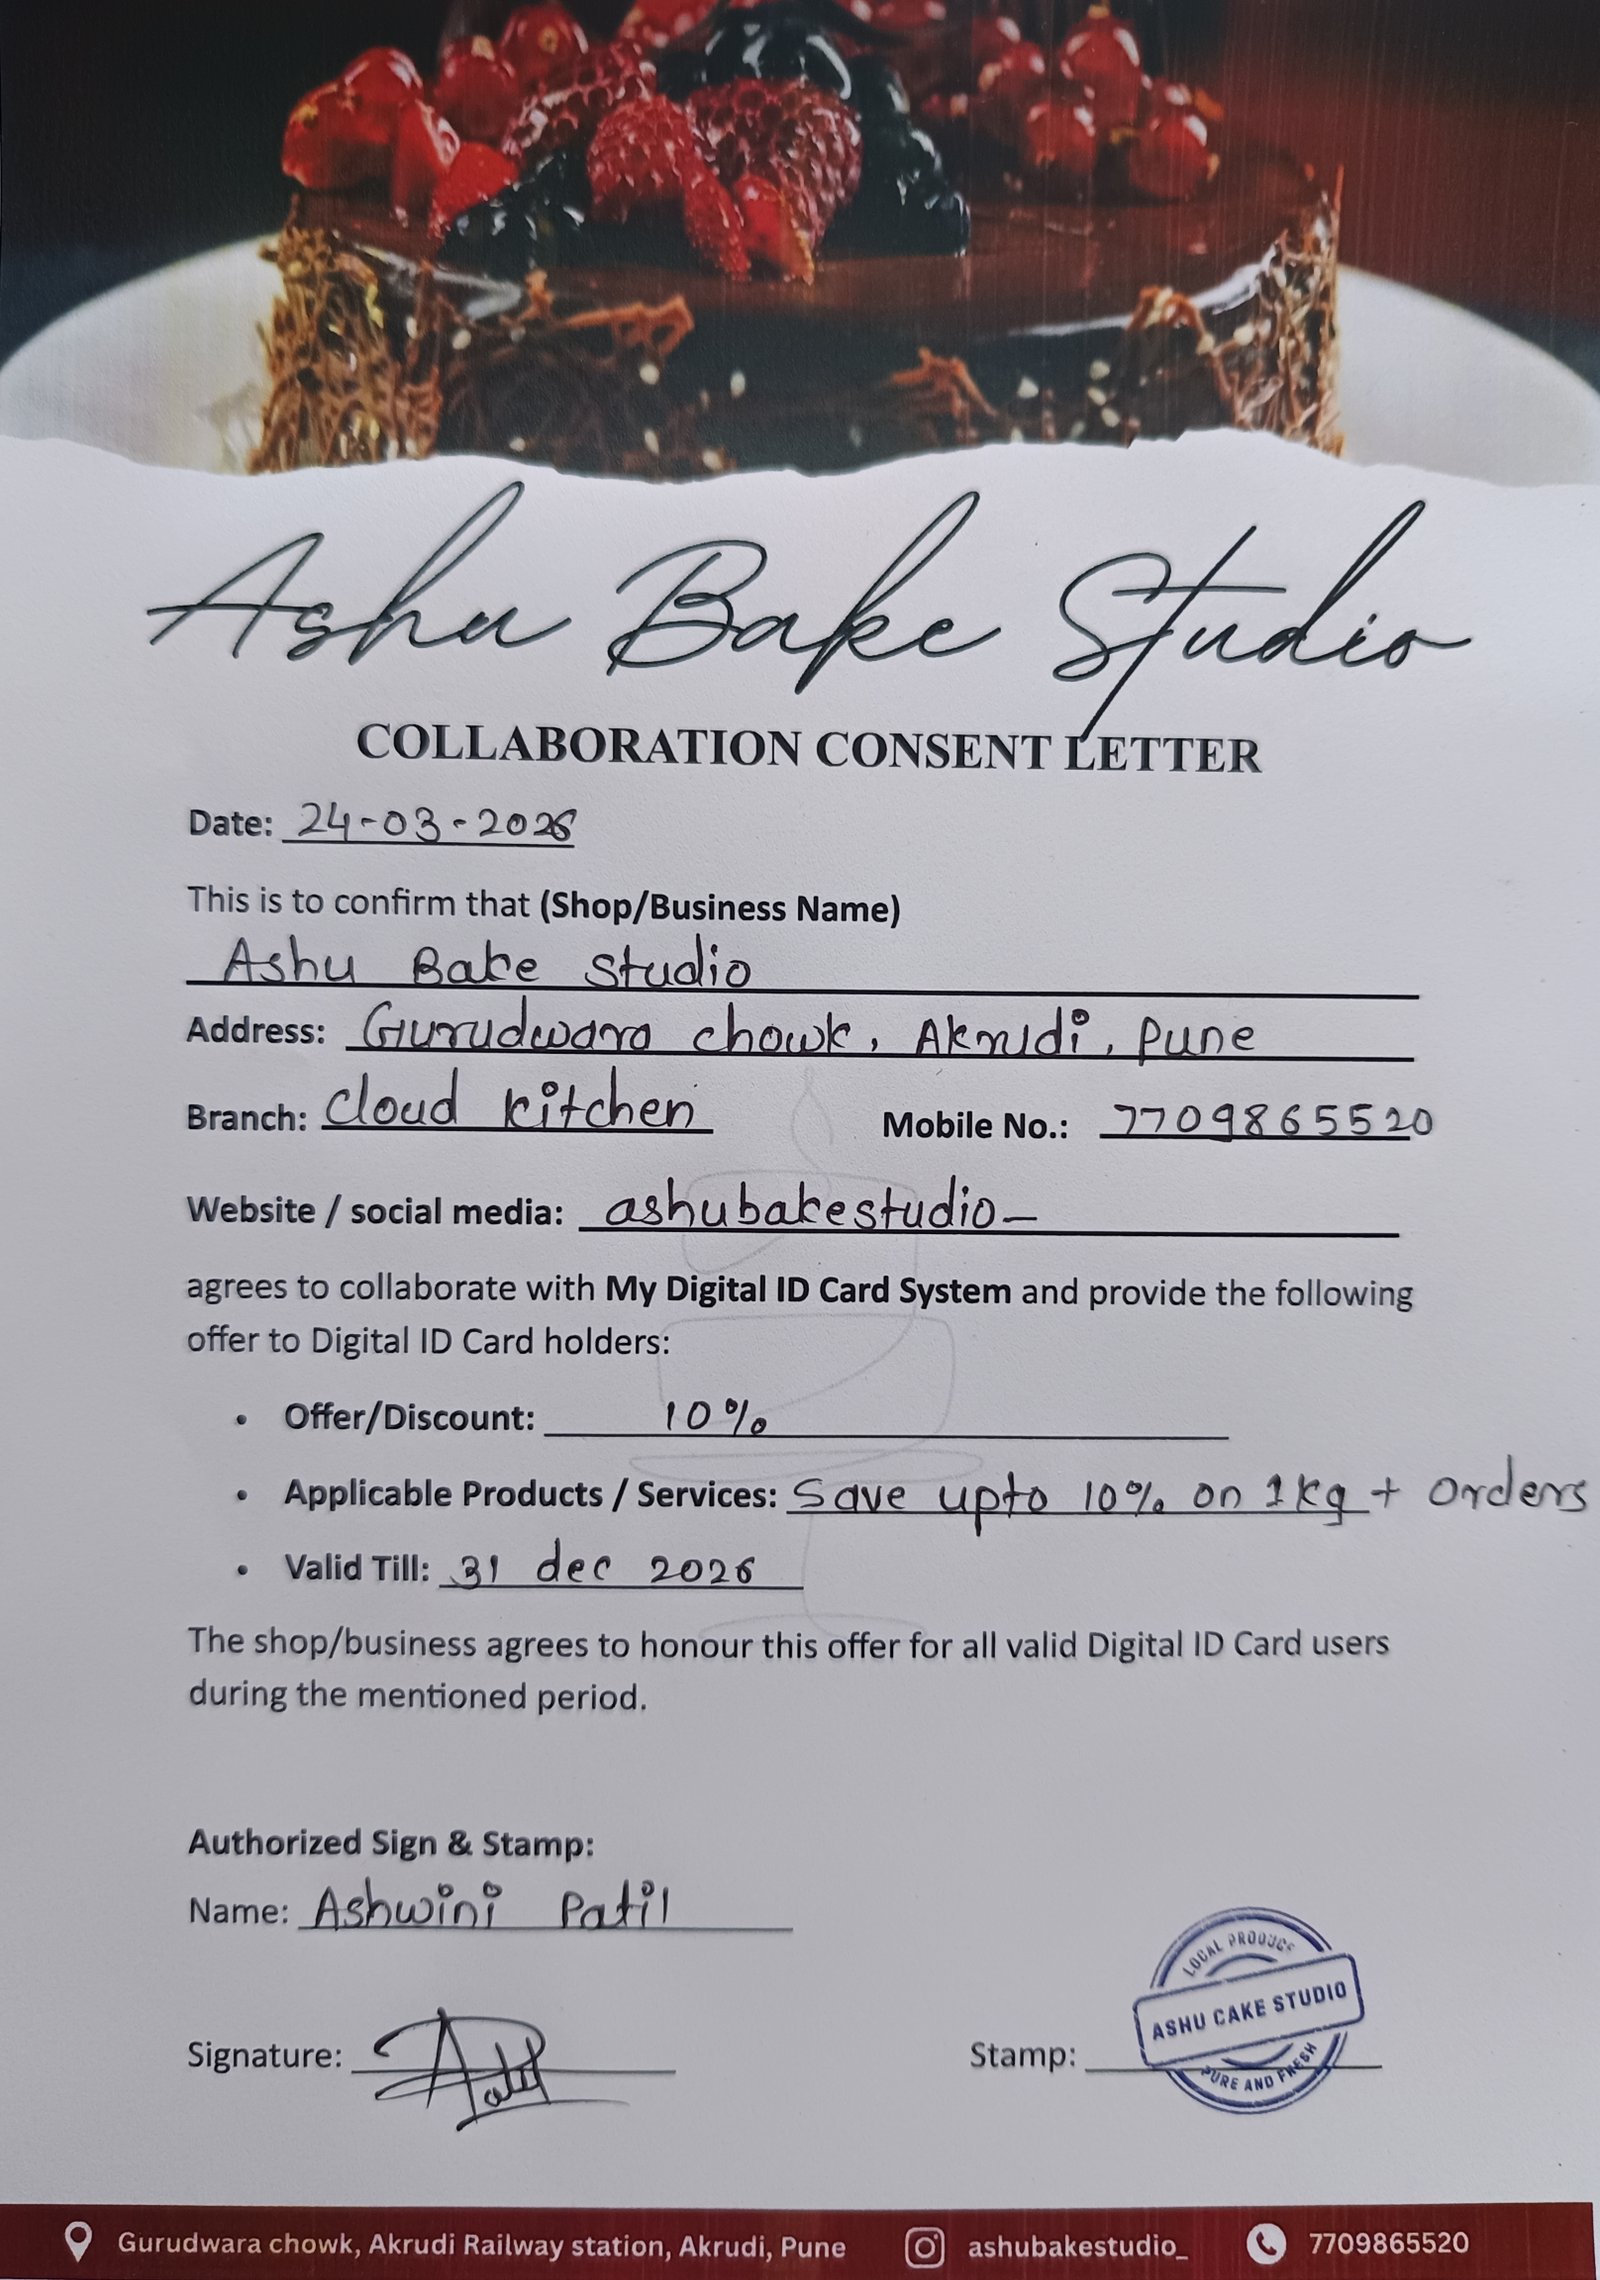 Ashu Bake Studio
COLLABORATION CONSENT LETTER
Date: 24-03-2026
This is to confirm that (Shop/Business Name)
Ashu Bake Studio
Address: Gurudwara chowk, Akrudi, Pune
Branch: Cloud kitchen Mobile No.: 7709865520
Website / social media: ashubakestudio_
agrees to collaborate with My Digital ID Card System and provide the following
offer to Digital ID Card holders:
• Offer/Discount: 10%
• Applicable Products / Services: Save upto 10% on 1kg + orders
• Valid Till: 31 dec 2026
The shop/business agrees to honour this offer for all valid Digital ID Card users
during the mentioned period.
Authorized Sign & Stamp:
Name: Ashwini Patil
LOCAL PRODUCE
ASHU CAKE STUDIO
PURE AND FRESH
Signature: APatil Stamp:
Gurudwara chowk, Akrudi Railway station, Akrudi, Pune ashubakestudio_ 7709865520